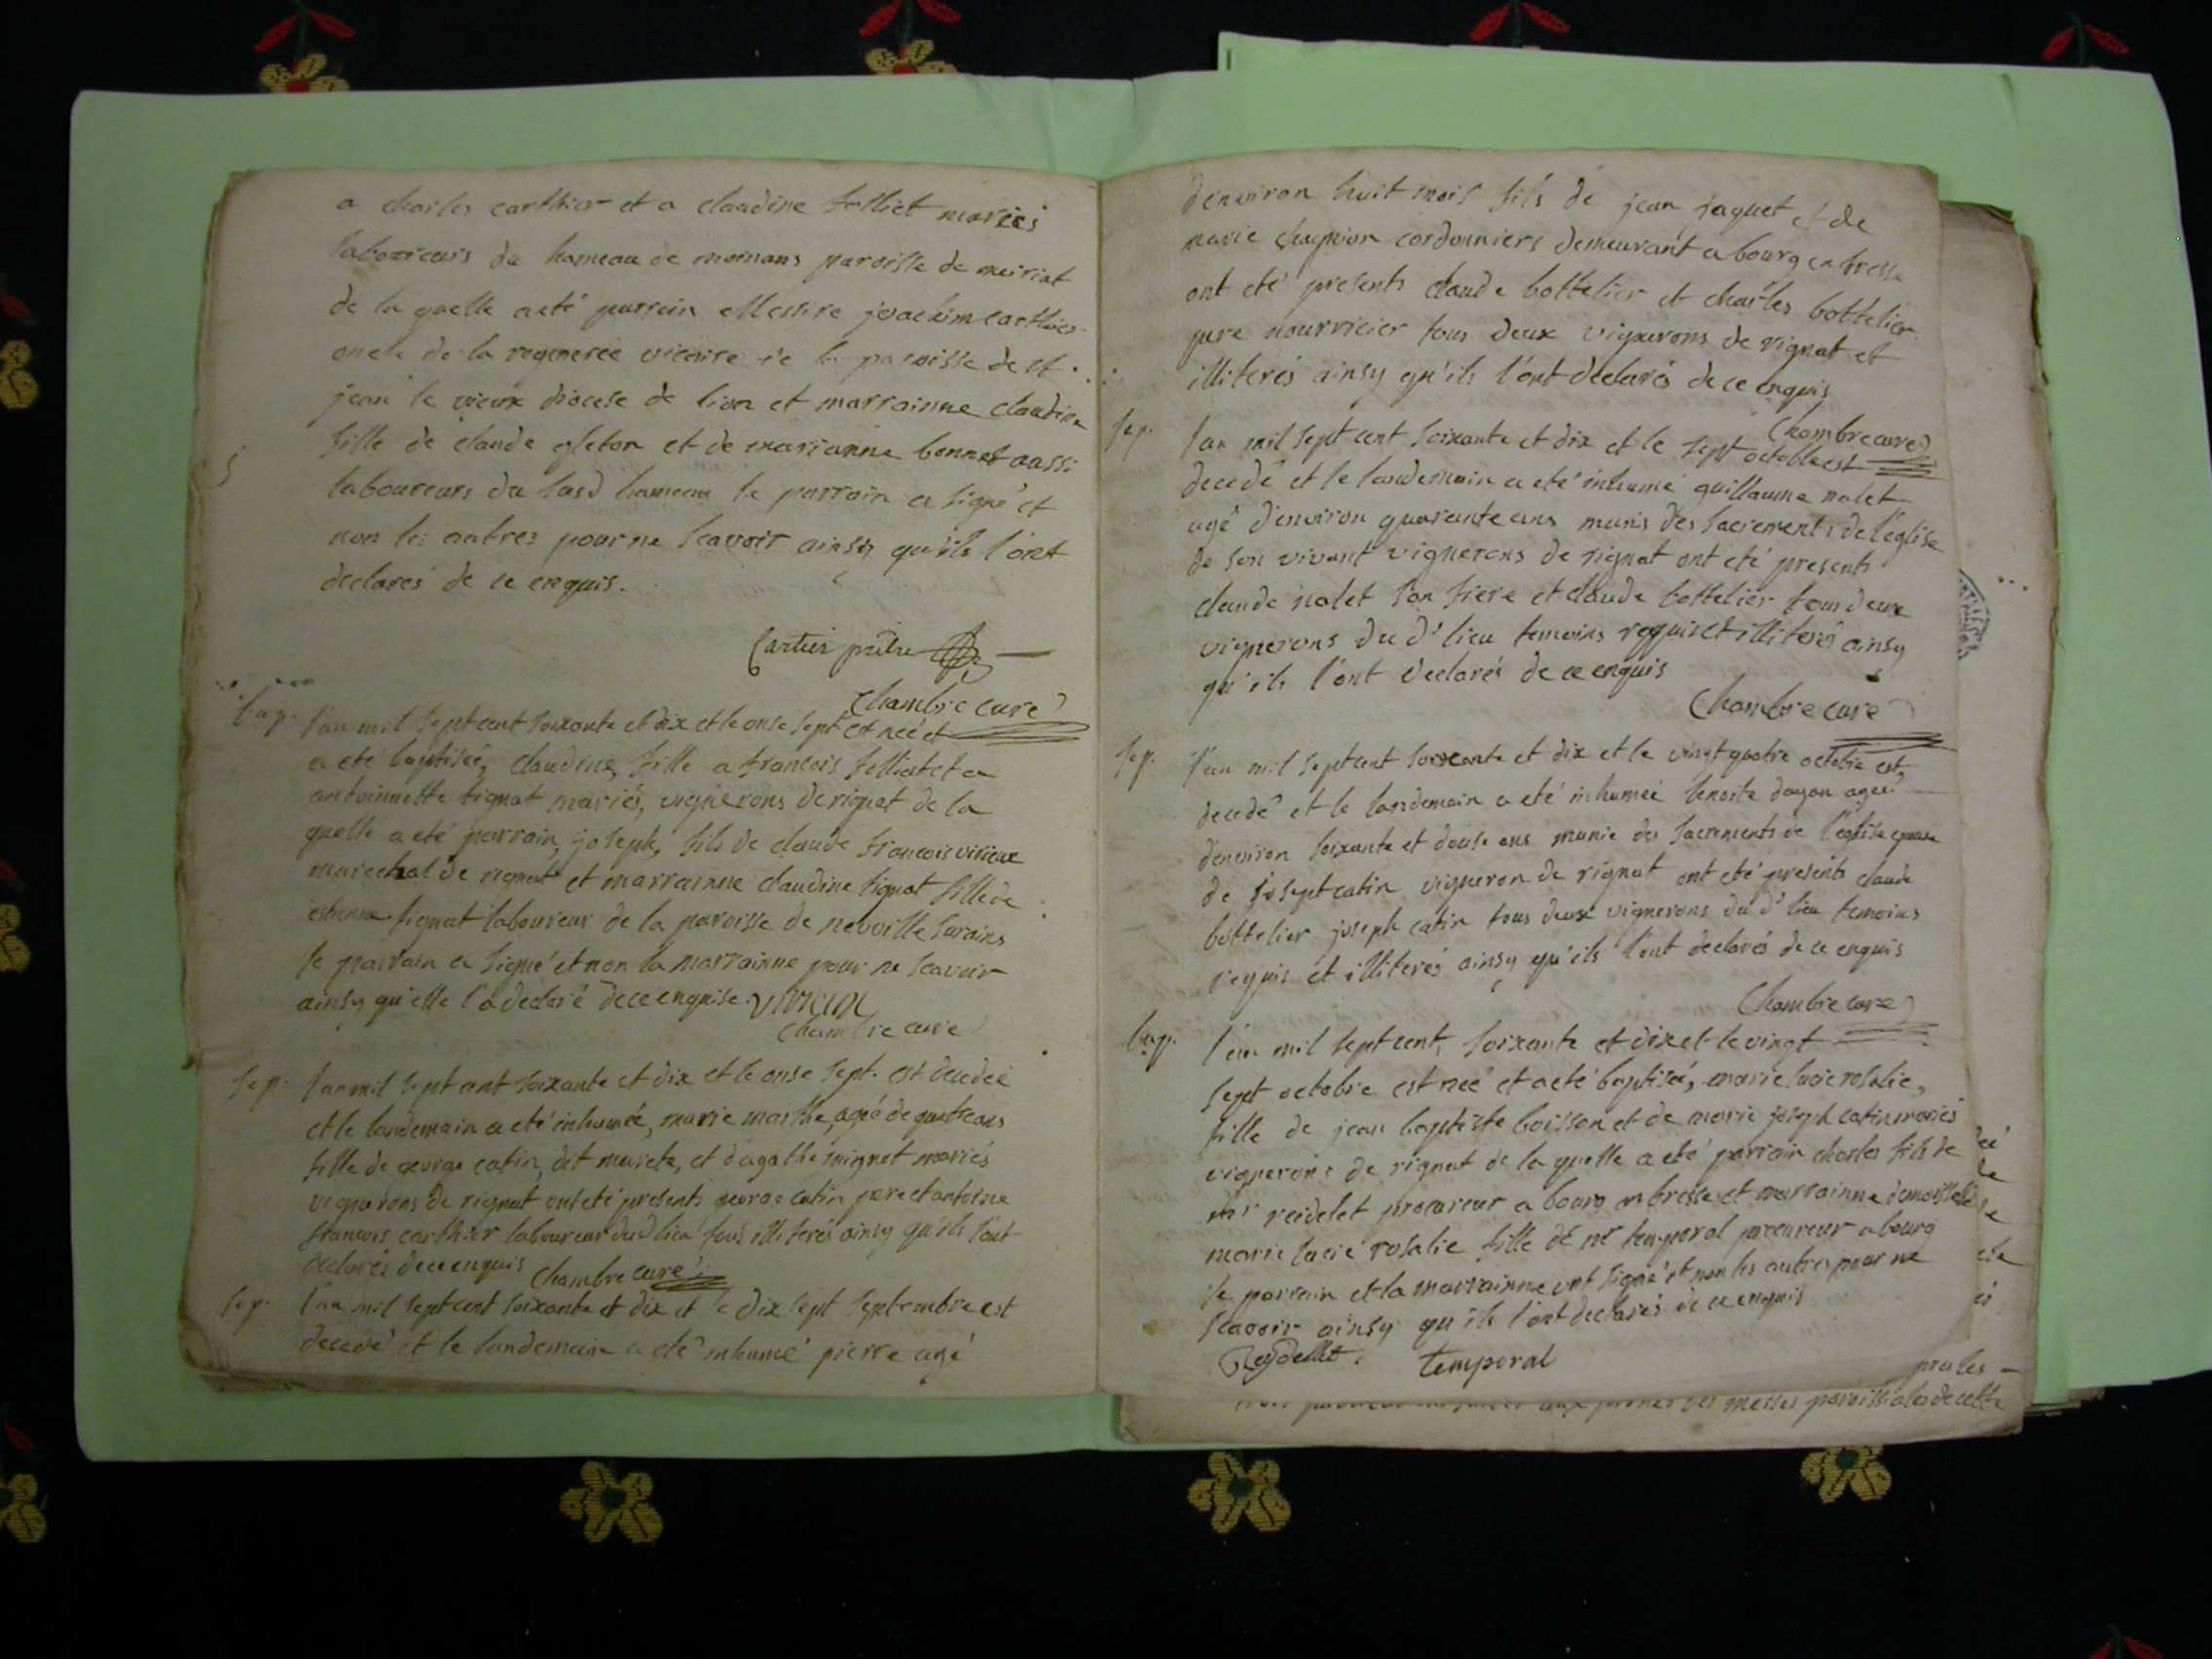 a charles carthier et a claudine felliet mariés
laboureurs du hameau de momans paroisse de meiriat
de la quelle a eté parrain Messire joachim carthier
oncle de la regenerée vicaire de la paroisse de st
jean le vieux diocese de lion et marrainne claudine
fille de claude gleton et de marianne bonnet aussi
laboureurs du susd hameau le parrain a signé et
non les autres pour ne scavoir ainsy qu'ils l'ont
declarés de ce enquis.
Cartier prêtre
Chambre curé
bap. l'an mil sept cent soixante et dix et le onse sept est neé et
a eté baptiseé, claudine, fille a francois felliet et a
antoinette tignat mariés, vignerons de rignat de la
quelle a eté parrain, joseph, fils de claude francois
marechal de rignat et marrainne claudine tignat fille de
estienne tignat laboureur de la paroisse de neuville surains
le parrain a signé et non la marrainne pour ne scavoir
ainsy qu'elle l'a declaré de ce enquise.
Chambre curé
sep. l'an mil sept cent soixante et dix et le onse sept. est decedeé
et le landemain a eté inhumeé, marie marthe, ageé de quatre ans
fille de george catin, dit murete, et d'agathe mignot mariés
vignerons de rignat ont eté presents george catin pere et antoine
francois carthier laboureur dud lieu tous illiterés ainsy qu'ils l'ont
declarés de ce enquis Chambre curé
sep. l'an mil sept cent soixante et dix et le dix sept septembre est
decedé et le landemain a eté inhumé pierre agé
d'environ huit mois fils de jean jaquet et de
marie chagnion cordonniers demeurant a bourg en bresse
ont eté presents claude bottelier et charles bottelier
pere nourricier tous deux vignerons de rignat et
illiterés ainsy qu'ils l'ont declarés de ce enquis
Chambre curé
sep. l'an mil sept cent soixante et dix et le sept octobre est
decedé et le landemain a eté inhumé guillaume nalet
agé d'environ quarante ans munis des sacrements de l'eglise
de son vivant vignerons de rignat ont eté presents
claude nalet son frere et claude bottelier tous deux
vignerons du d' lieu temoins requis et illiterés ainsy
qu'ils l'ont declarés de ce enquis
Chambre curé
sep. l'an mil sept cent soixante et dix et le vingt quatre octobre est
decedé et le landemain a eté inhumeé benoite dagan ageé
d'environ soixante et douse ans munie des sacrements de l'eglise epouse
de josept catin vigneron de rignat ont eté presents claude
bottelier joseph catin tous deux vignerons du d' lieu temoins
requis et illiterés ainsy qu'ils l'ont declarés de ce enquis
Chambre curé
bap. l'an mil sept cent, soixante et dix et le vingt
sept octobre est neé et a eté baptiseé, marie lucie rosalie,
fille de jean baptiste boisson et de marie joseph catin mariés
vignerons de rignat de la quelle a eté parrain charles fils de
mr reidelet procureur a bourg en bresse et marrainne demoiselle
marie lucie rosalie fille de mr temporal procureur a bourg
le parrain et la marrainne ont signé et non les autres pour ne
scavoir ainsy qu'ils l'ont declarés de ce enquis
Reydellet. temporal
aux prones des messes paroissiales de cette